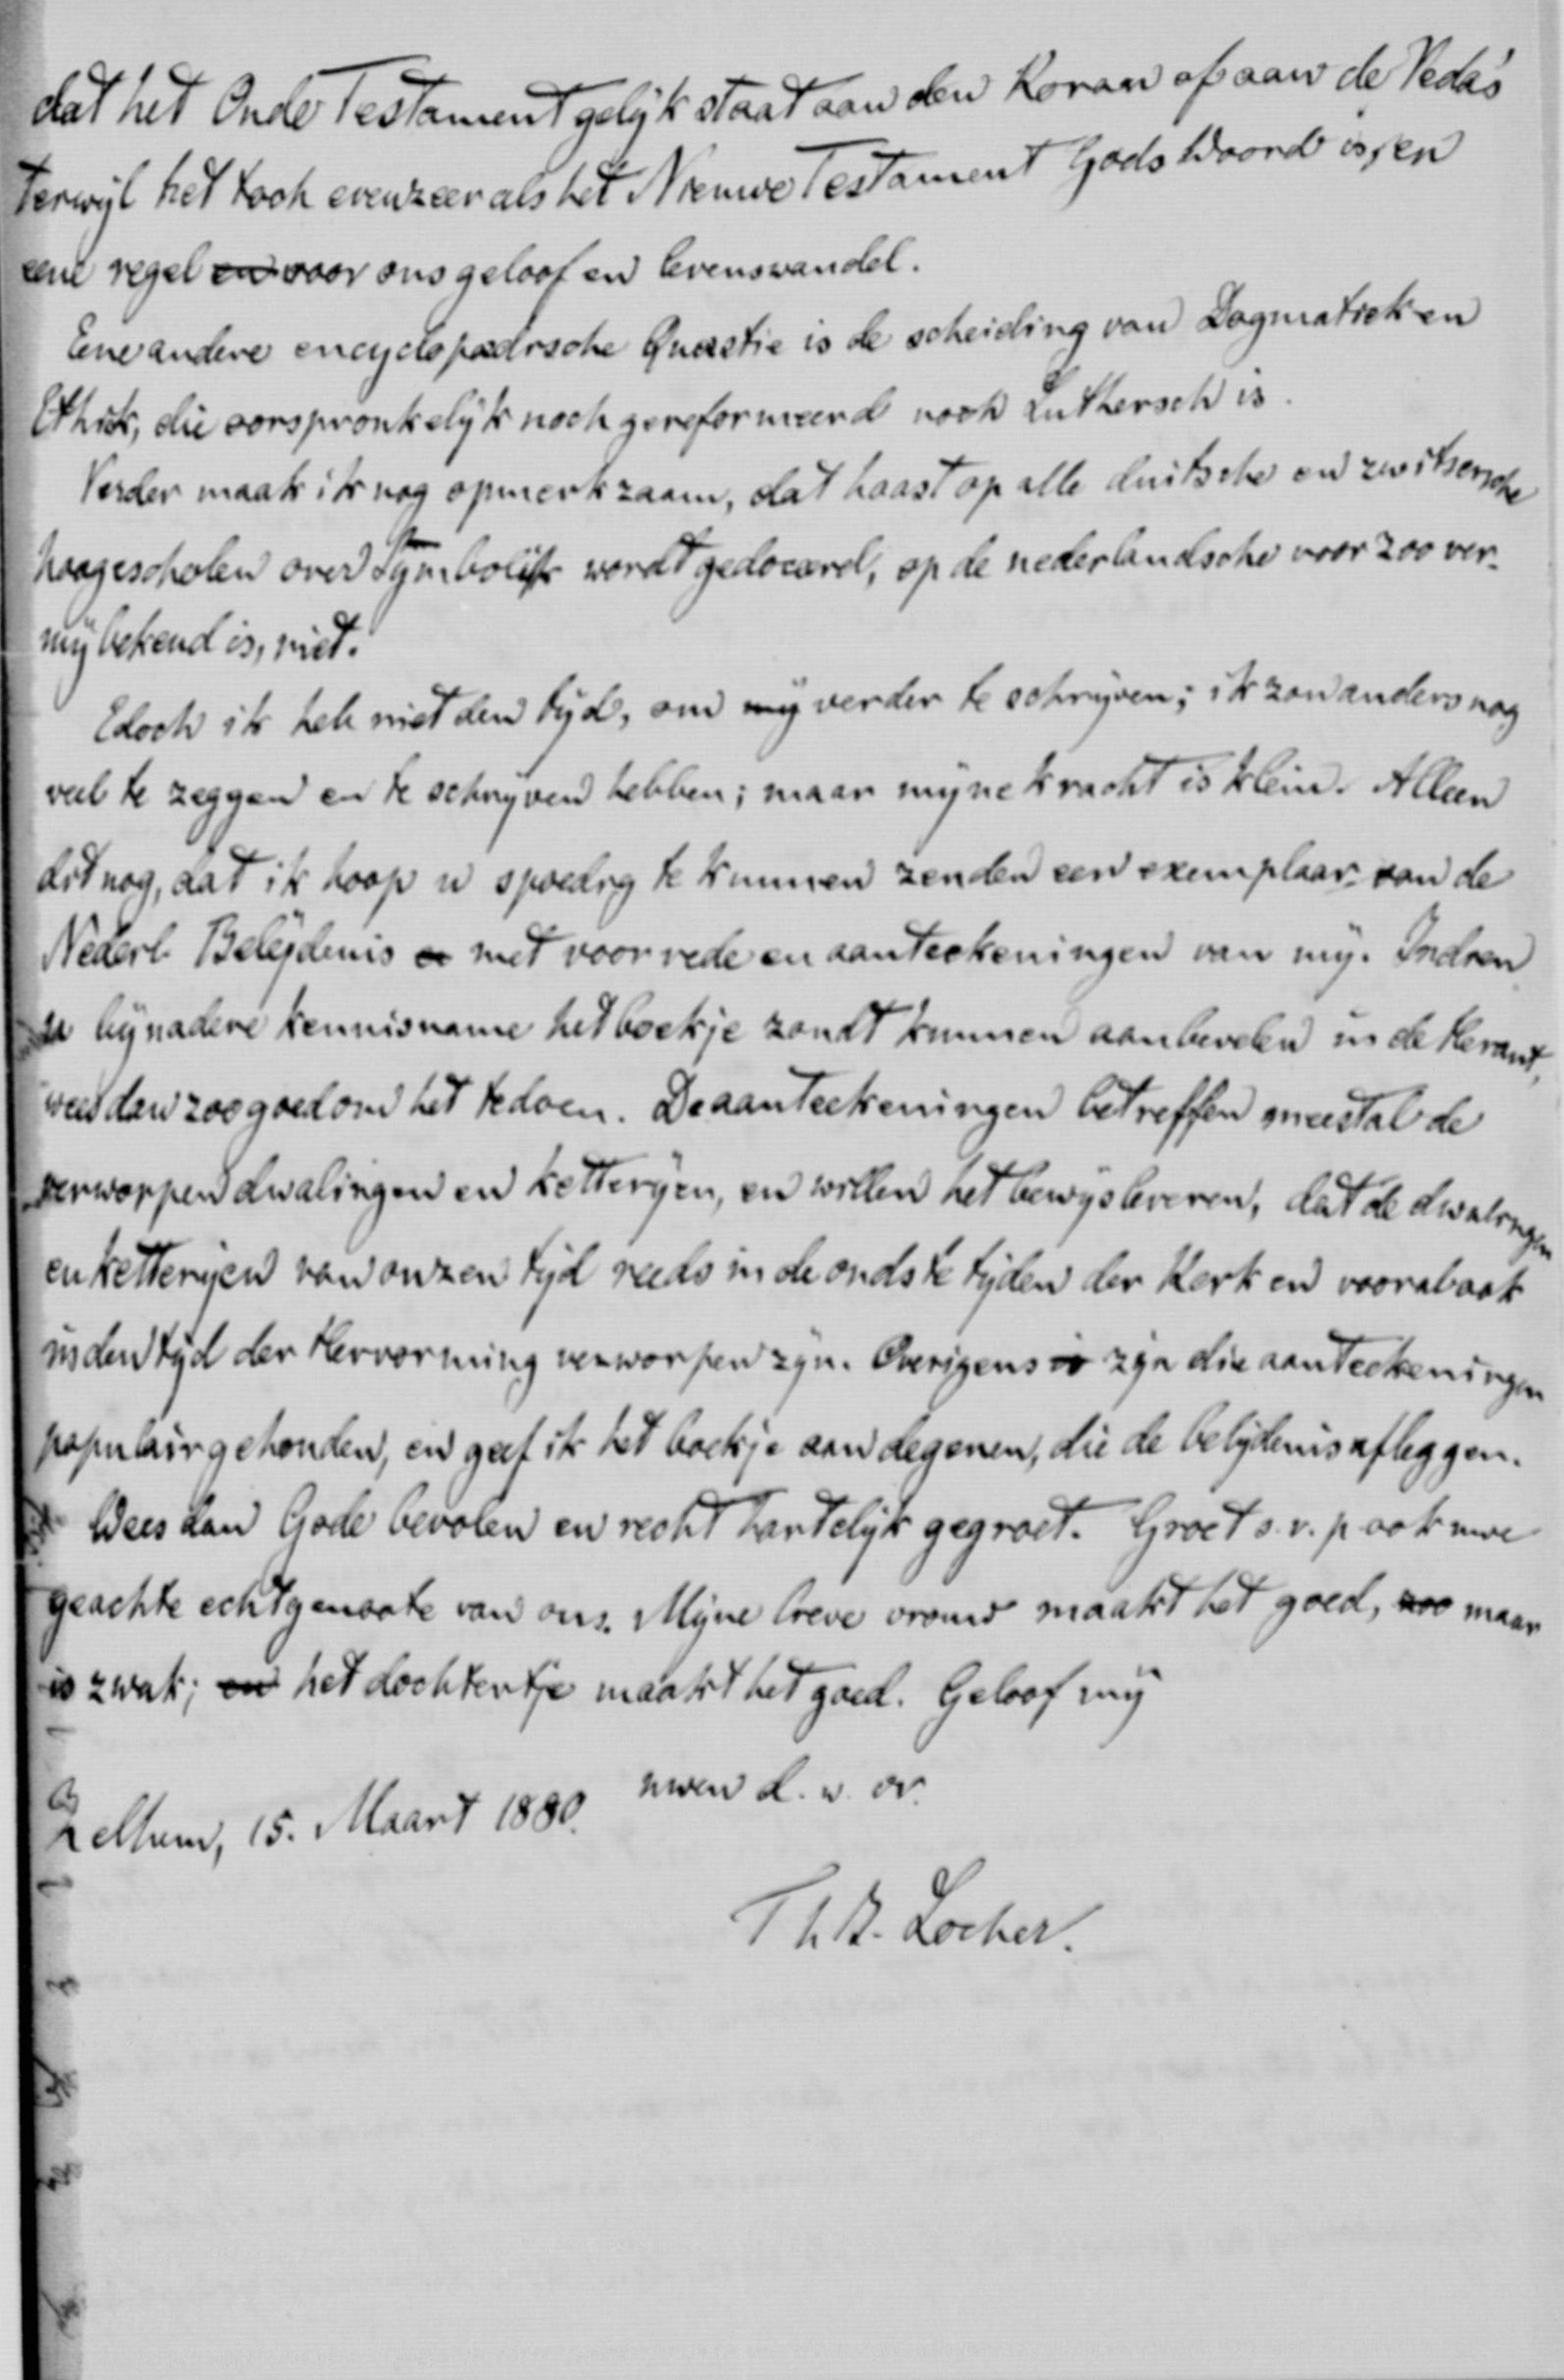 dat het Oude Testament gelijk staat aan den Koran of aan de Veda's
terwijl het toch evenzeer als het Nieuwe Testament Gods Woord is, en
eene regel en voor ons geloof en levenswandel.
Eene andere encyclopædische Quaestie is de scheiding van Dogmatiek en
Ethiek, die oorspronkelijk noch gereformeerd noch Luthersch is.
Verder maak ik nog opmerkzaam, dat haast op alle duitsche en zwitsersche
hoogescholen over Symboliek wordt gedoceerd, op de nederlandsche voor zoo ver-
mij bekend is, niet.
Edoch ik heb niet den tijd, om mij verder te schrijven; ik zou anders nog
veel te zeggen en te schrijven hebben; maar mijne kracht is klein. Alleen
dit nog, dat ik hoop u spoedig te kunnen zenden een exemplaar van de
Nederl. Belijdenis met voorrede en aanteekeningen van mij. Indien
u bij nadere kennisname het boekje zoudt kunnen aanbevelen in de Heraut,
wees dan zoo goed om het te doen. De aanteekeningen betreffen meestal de
verworpen dwalingen en ketterijen, en willen het bewijs leveren, dat de dwalingen
en ketterijen van onzen tijd reeds in de oudste tijden der Kerk en vooral ook
in den tijd der Hervorming verworpen zijn. Overigens is zijn die aanteekeningen
populair gehouden, en geef ik het boekje aan degenen, die de belijdenis afleggen.
Wees dan Gode bevolen en recht hartelijk gegroet. Groet s.v.p ook uwe
geachte echtgenoote van ons. Mijne lieve vrouw maakt het goed, zoo maar
is zwak; en het dochtertje maakt het goed. Geloof mij
uwen d. w. vr.
Zelhem, 15. Maart 1880.
Th. B. Locher.